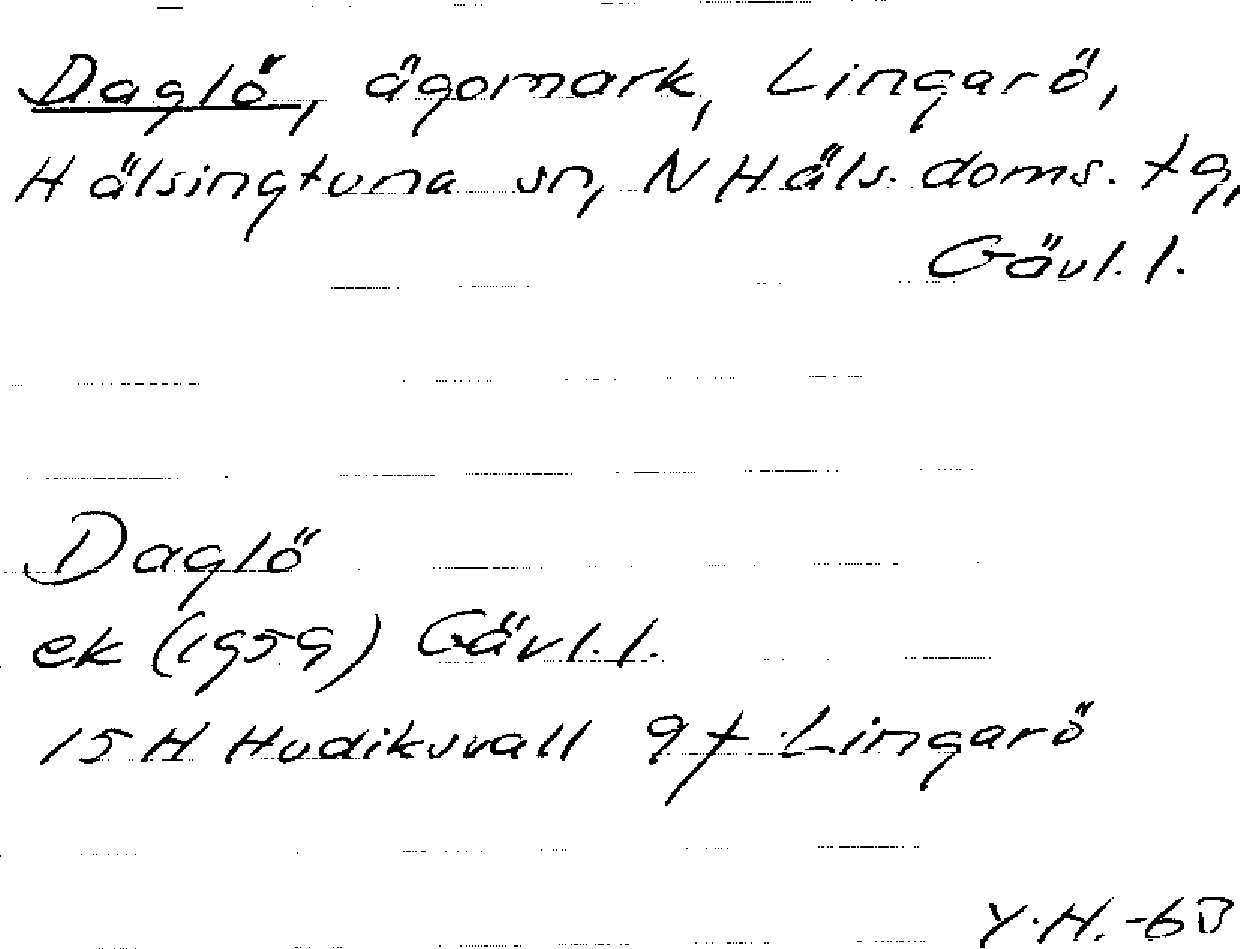 Daglö, ägomark, Lingarö,
Hälsingtuna sn, N Häls. doms. tg,
Gävl. l.
Daglö
ek (1959) Gävl. l.
15 H Hudiksvall 9 f Lingarö
Y. H. -63